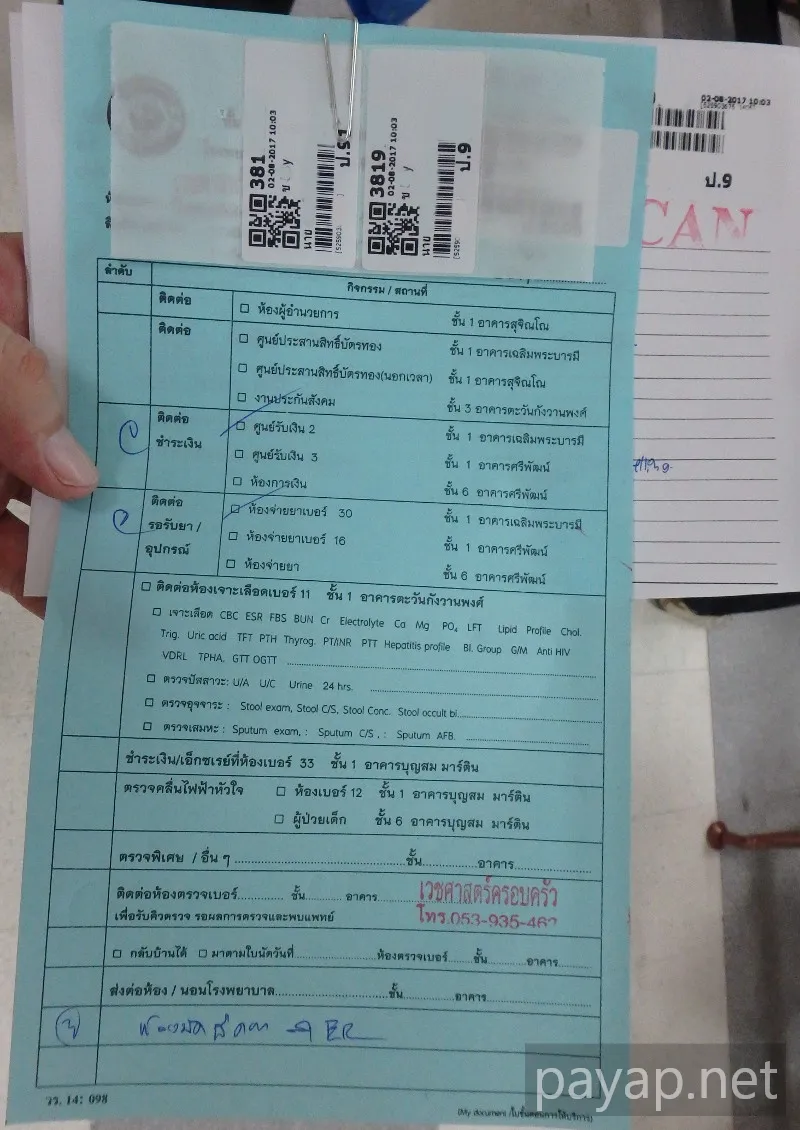 381
02-08-2017 10:03
นาย
ป.9
3819
02-08-2017 10:03
นาย
ป.9
02-08-2017 10:03
ป.9
CAN
ลำดับ กิจกรรม / สถานที่
ติดต่อ ☐ ห้องผู้อำนวยการ ชั้น 1 อาคารสุจิณโณ
ติดต่อ ☐ ศูนย์ประสานสิทธิ์บัตรทอง ชั้น 1 อาคารเฉลิมพระบารมี
☐ ศูนย์ประสานสิทธิ์บัตรทอง(นอกเวลา) ชั้น 1 อาคารสุจิณโณ
☐ งานประกันสังคม ชั้น 3 อาคารตะวันกังวานพงศ์
ติดต่อ ☐ ศูนย์รับเงิน 2 ชั้น 1 อาคารเฉลิมพระบารมี
ชำระเงิน ☐ ศูนย์รับเงิน 3 ชั้น 1 อาคารศรีพัฒน์
☐ ห้องการเงิน ชั้น 6 อาคารศรีพัฒน์
ติดต่อ ☐ ห้องจ่ายยาเบอร์ 30 ชั้น 1 อาคารเฉลิมพระบารมี
รอรับยา / ☐ ห้องจ่ายยาเบอร์ 16 ชั้น 1 อาคารศรีพัฒน์
อุปกรณ์ ☐ ห้องจ่ายยา ชั้น 6 อาคารศรีพัฒน์
☐ ติดต่อห้องเจาะเลือดเบอร์ 11 ชั้น 1 อาคารตะวันกังวานพงศ์
☐ เจาะเลือด CBC ESR FBS BUN Cr Electrolyte Ca Mg PO₄ LFT Lipid Profile Chol.
Trig. Uric acid TFT PTH Thyrog. PT/INR PTT Hepatitis profile Bl. Group G/M Anti HIV
VDRL TPHA, GTT OGTT
☐ ตรวจปัสสาวะ: U/A U/C Urine 24 hrs.
☐ ตรวจอุจจาระ : Stool exam, Stool C/S, Stool Conc. Stool occult bl.
☐ ตรวจเสมหะ : Sputum exam, : Sputum C/S , : Sputum AFB.
ชำระเงิน/เอ็กซเรย์ที่ห้องเบอร์ 33 ชั้น 1 อาคารบุญสม มาร์ติน
ตรวจคลื่นไฟฟ้าหัวใจ ☐ ห้องเบอร์ 12 ชั้น 1 อาคารบุญสม มาร์ติน
☐ ผู้ป่วยเด็ก ชั้น 6 อาคารบุญสม มาร์ติน
ตรวจพิเศษ / อื่น ๆ ชั้น อาคาร
ติดต่อห้องตรวจเบอร์ ชั้น อาคาร เวชศาสตร์ครอบครัว
เพื่อรับคิวตรวจ รอผลการตรวจและพบแพทย์ โทร.053-935-462
☐ กลับบ้านได้ ☐ มาตามใบนัดวันที่ ห้องตรวจเบอร์ ชั้น อาคาร
ส่งต่อห้อง / นอนโรงพยาบาล ชั้น อาคาร
ER
วว. 14: 098
(My document /ใบขั้นตอนการให้บริการ)
payap.net